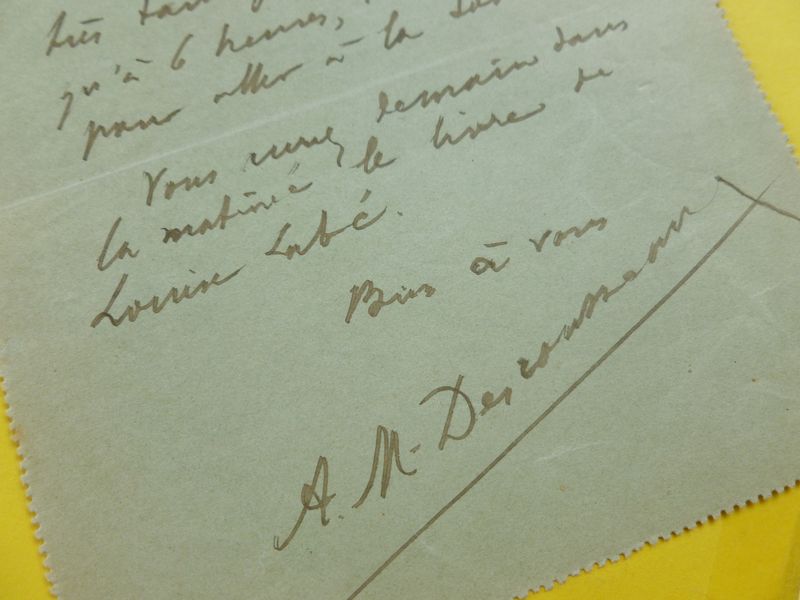 très tard
qu'à 6 heures,
pour aller à la
Vous aurez demain dans
la matinée le livre de
Louise Labé.
Bien à vous
A. M. Desrousseaux